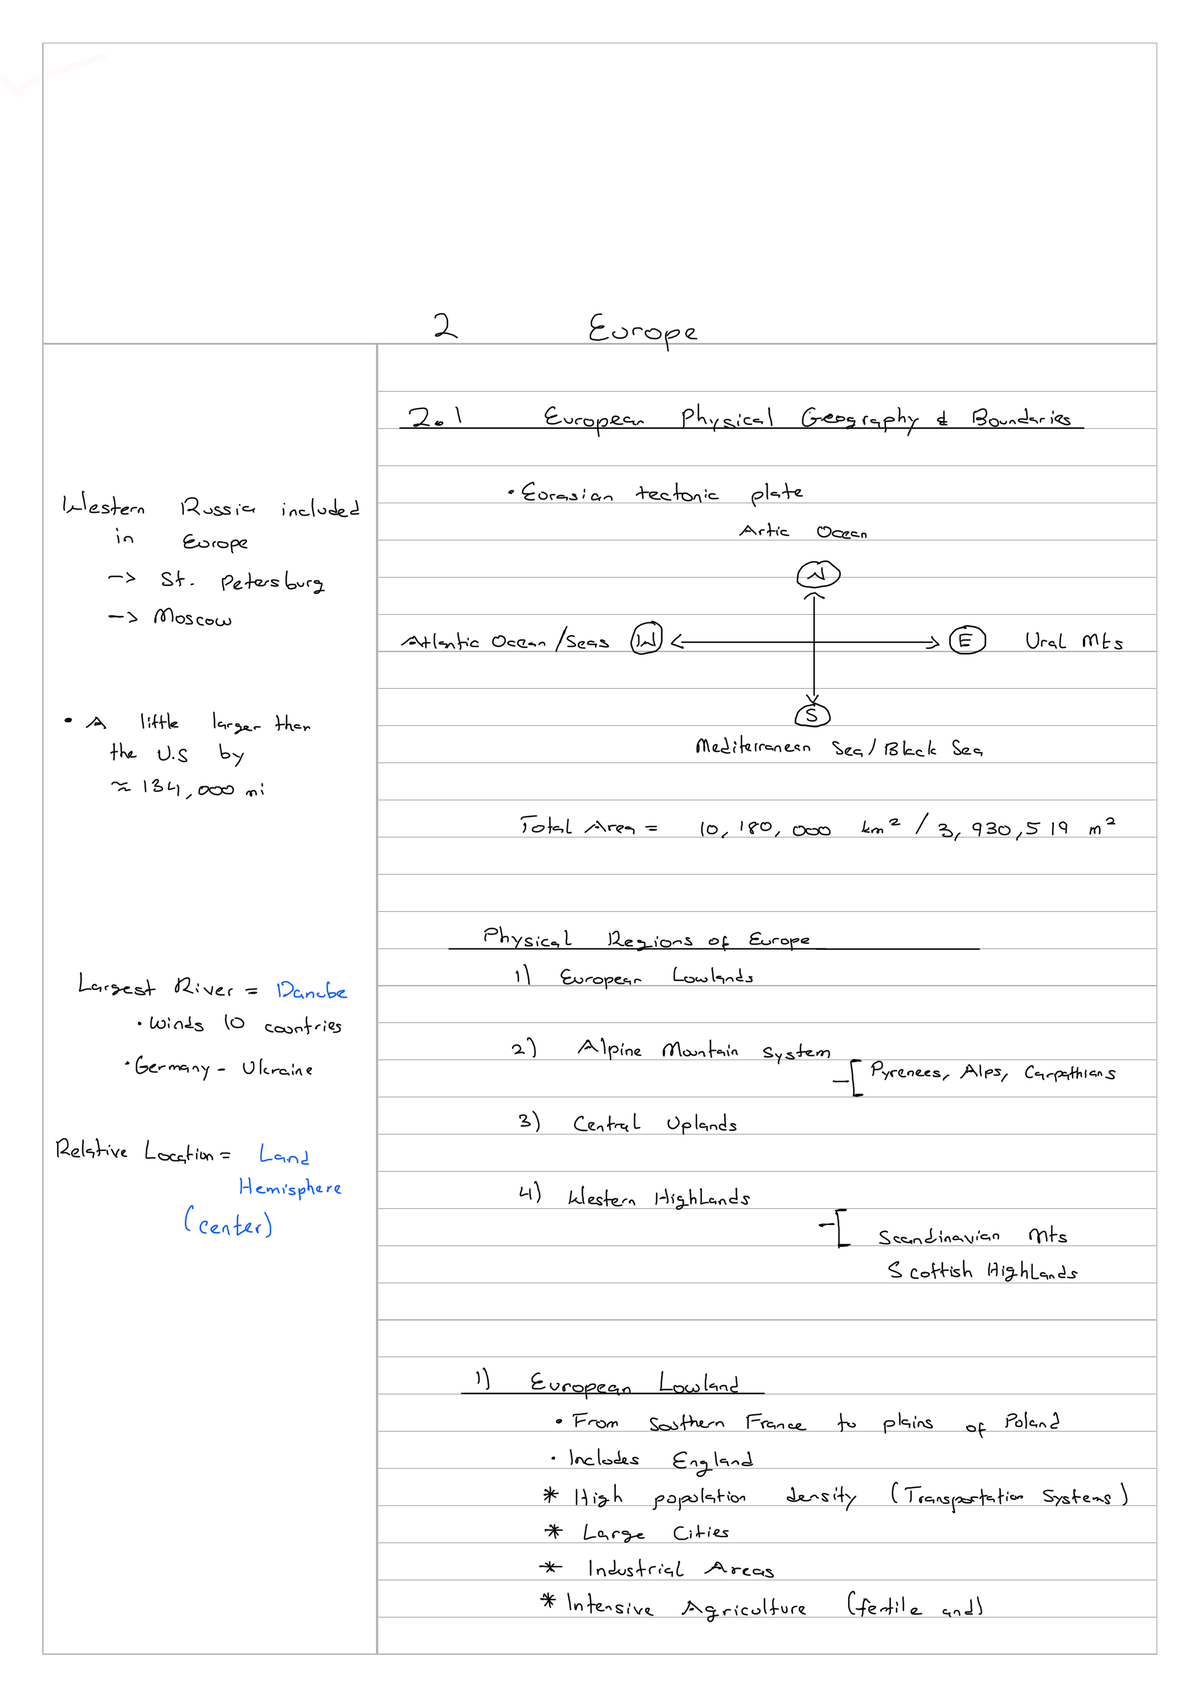 2 Europe
2.1 European Physical Geography & Boundaries
Western Russia included
in Europe
-> St. Petersburg
-> Moscow
• A little larger than
the U.S by
≈ 134,000 mi
Largest River = Danube
• Winds 10 countries
• Germany - Ukraine
Relative Location = Land
Hemisphere
(center)
• Eorasian tectonic plate
Artic Ocean
N
Atlantic Ocean /Seas W E Ural Mts
S
Mediterranean Sea / Black Sea
Total Area = 10,180,000 km² / 3,930,519 m²
Physical Regions of Europe
1) European Lowlands
2) Alpine Mountain System
-[ Pyrenees, Alps, Carpathians
3) Central Uplands
4) Western Highlands
-[ Scandinavian Mts
Scottish Highlands
1) European Lowland
• From Southern France to plains of Poland
• Includes England
* High population density (Transportation Systems)
* Large Cities
* Industrial Areas
* Intensive Agriculture (fertile and)